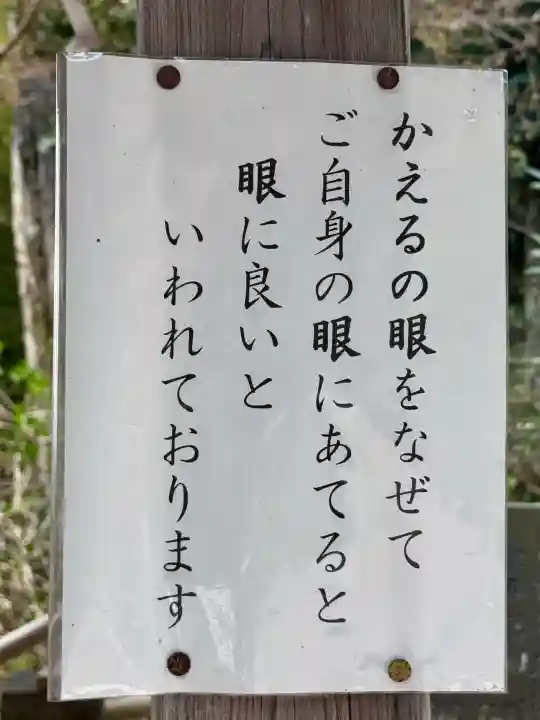 かえるの眼をなぜて
ご自身の眼にあてると
眼に良いと
いわれております